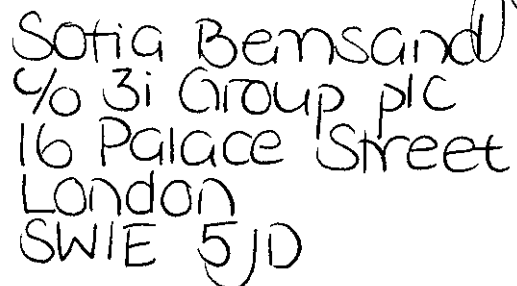 Sofia Bernsand
c/o 3i Group plc
16 Palace Street
London
SW1E 5JD